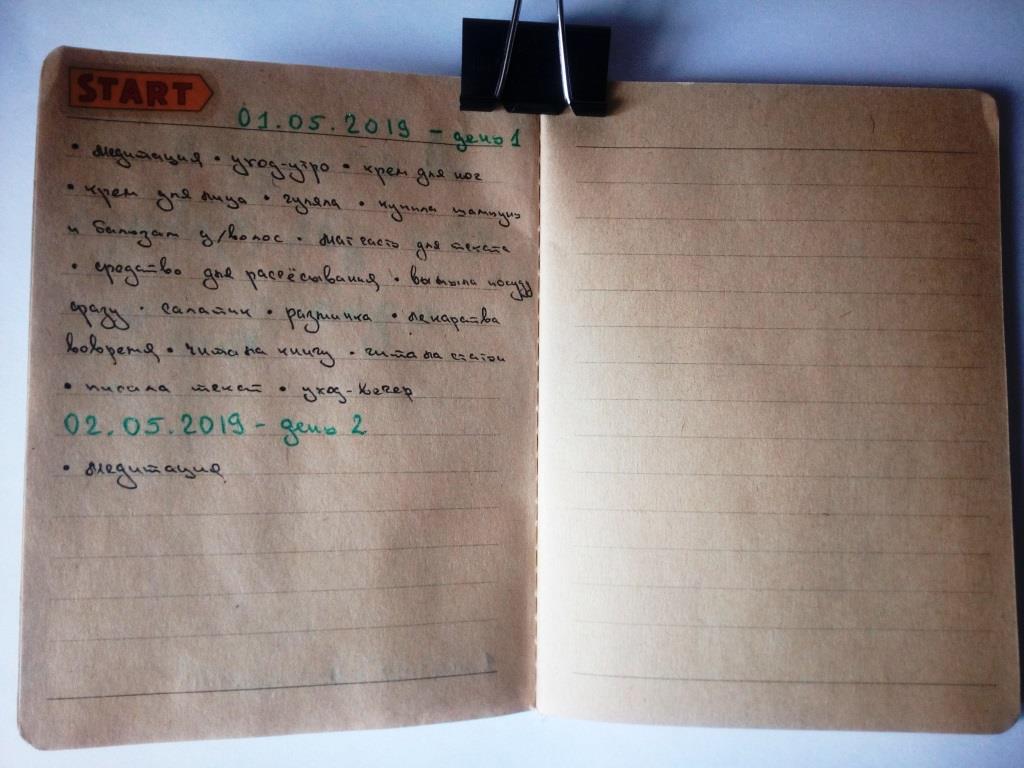 START
01.05.2019 - день 1
• медитация • уход-утро • крем для ног
• крем для лица • гуляла • купила шампунь
и бальзам д/волос • для текста
• средство для рассёсывания • вымыла посуду
сразу • салатик • разминка • лекарства
вовремя • читала книгу • читала статьи
• писала текст • уход-вечер
02.05.2019 - день 2
• медитация